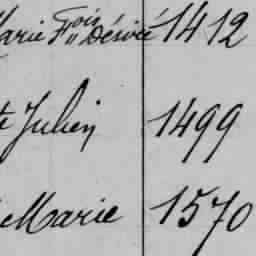 Marie Fois Désiré 1412
te Julien 1499
Marie 1570